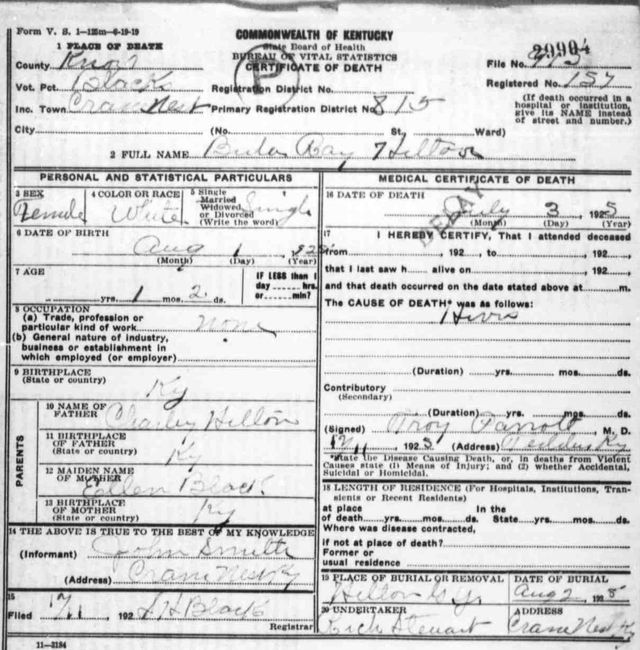 Form V. S. 1-125m-6-19-19
COMMONWEALTH OF KENTUCKY
State Board of Health
BUREAU OF VITAL STATISTICS
CERTIFICATE OF DEATH
1 PLACE OF DEATH
County Knox
Vot. Pct. Black
Inc. Town Crane Nest
City
Registration District No.
Primary Registration District No. 815
(No. St. Ward)
File No. 20904
Registered No. 157
(If death occurred in a
hospital or institution,
give its NAME instead
of street and number.)
2 FULL NAME Ray Hilton
PERSONAL AND STATISTICAL PARTICULARS
3 SEX
Female
4 COLOR OR RACE
White
5 Single
Married
Widowed
or Divorced
(Write the word)
Single
6 DATE OF BIRTH
Aug 1
(Month) (Day) (Year)
7 AGE
yrs. 1 mos. 2 ds.
IF LESS than 1
day hrs.
or min?
8 OCCUPATION
(a) Trade, profession or
particular kind of work none
(b) General nature of industry,
business or establishment in
which employed (or employer)
9 BIRTHPLACE
(State or country)
Ky
PARENTS
10 NAME OF
FATHER Charley Hilton
11 BIRTHPLACE
OF FATHER
(State or country) Ky
12 MAIDEN NAME
OF MOTHER Black
13 BIRTHPLACE
OF MOTHER
(State or country) Ky
14 THE ABOVE IS TRUE TO THE BEST OF MY KNOWLEDGE
(Informant) John
(Address) Crane Nest Ky
15
Filed 192 Black
Registrar
11-3184
MEDICAL CERTIFICATE OF DEATH
16 DATE OF DEATH
DELAY
July 3 1925
(Month) (Day) (Year)
17
I HEREBY CERTIFY, That I attended deceased
from , 192 to , 192
that I last saw h alive on , 192
and that death occurred on the date stated above at m.
The CAUSE OF DEATH* was as follows:
Hives
(Duration) yrs. mos. ds.
Contributory
(Secondary)
(Duration) yrs. mos. ds.
(Signed) Troy Parrott M. D.
192 (Address) Ky
*State the Disease Causing Death, or, in deaths from Violent
Causes state (1) Means of Injury; and (2) whether Accidental,
Suicidal or Homicidal.
18 LENGTH OF RESIDENCE (For Hospitals, Institutions, Tran-
sients or Recent Residents)
at place In the
of death yrs. mos. ds. State yrs. mos. ds.
Where was disease contracted,
if not at place of death?
Former or
usual residence
19 PLACE OF BURIAL OR REMOVAL
Hilton
DATE OF BURIAL
Aug 2 192
20 UNDERTAKER
Rich Stewart
ADDRESS
Crane Nest Ky